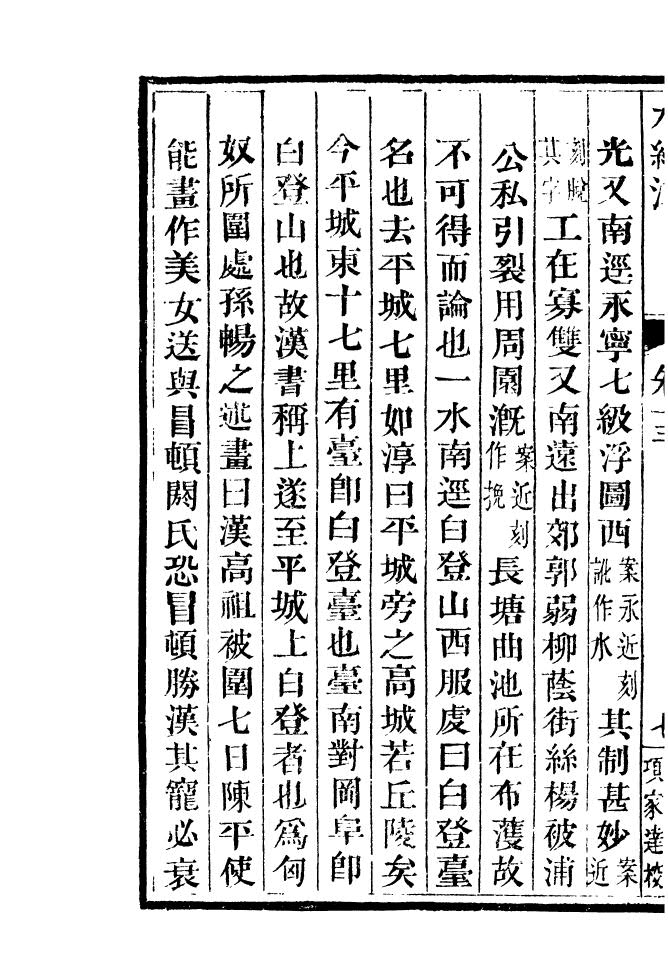 水經注 卷十三 七 項家達校
光又南逕永寧七級浮圖西案永近刻訛作水其制甚妙案近
刻脫其字工在寡雙又南遠出郊郭弱柳蔭街絲楊被浦
公私引裂用周園溉案近刻作挽長塘曲池所在布濩故
不可得而論也一水南逕白登山西服虔曰白登臺
名也去平城七里如淳曰平城旁之高城若丘陵矣
今平城東十七里有臺卽白登臺也臺南對岡阜卽
白登山也故漢書稱上遂至平城上白登者也爲匈
奴所圍處孫暢之述畫曰漢高祖被圍七日陳平使
能畫作美女送與冒頓閼氏恐冒頓勝漢其寵必衰